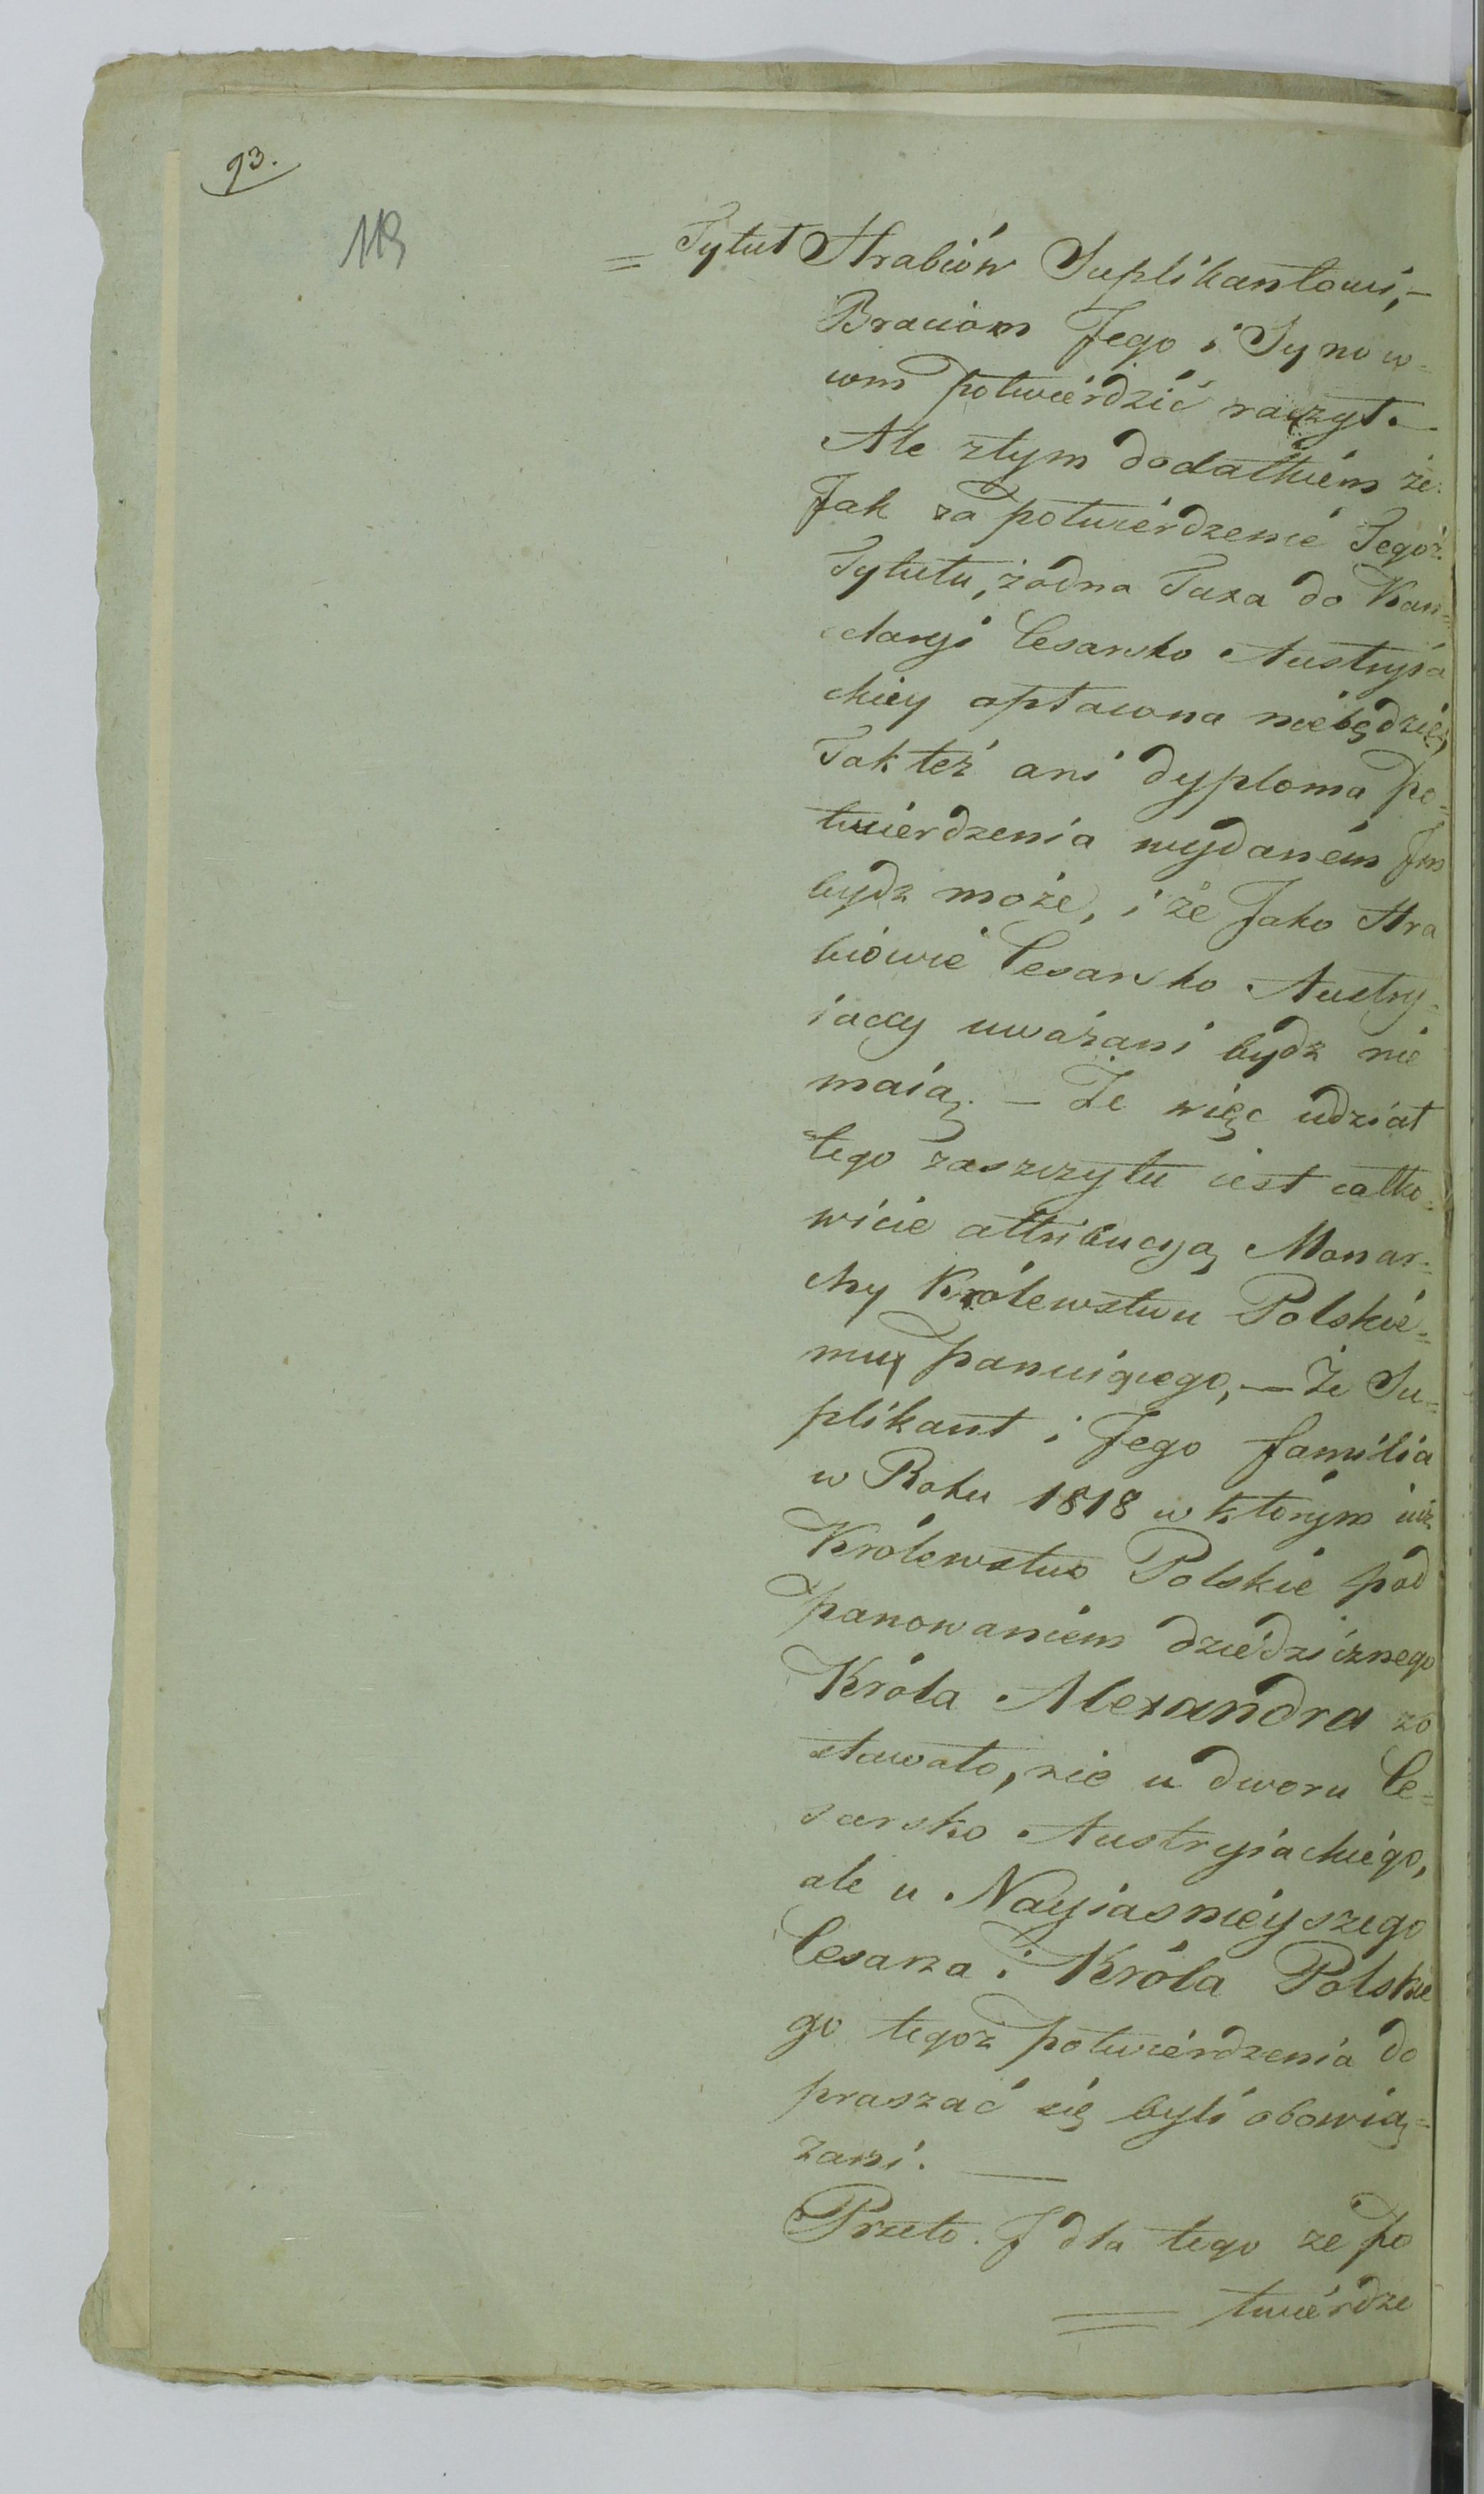 93.
113
= Tytuł Hrabiów Suplikantowi, –
Braciom Jego i Synow-
com potwierdzić raczył. –
Ale ztym dodatkiem że
Jak za potwierdzenie Tegoż
Tytułu, żadna Taxa do Kan=
celaryi Cesarsko Austryia
ckiey opłacona niebędzie,
Tak też ani dyploma po=
twierdzenia wydanem Jm
bydz może, i że Jako Hra
biowie Cesarsko Austry=
iaccy uważani bydz nie
maią. – Że więc udział
tego zaszczytu iest całko=
wicie attribucyą Monar=
chy Królewstwu Polskie=
mu panuiącego, – Że Su=
plikant i Jego familia
w Roku 1818 w którym iuż
Królewstwo Polskie pod
panowaniem dziedzicznego
Króla Alexandra zo
stawało, nie u dworu Ce=
sarsko Austryiackiego,
ale u Nayiasnieyszego
Cesarza i Króla Polskie
go tegoż potwierdzenia do
praszać się byli obowią=
zani. —
Przeto. J dla tego ze po
= twierdze